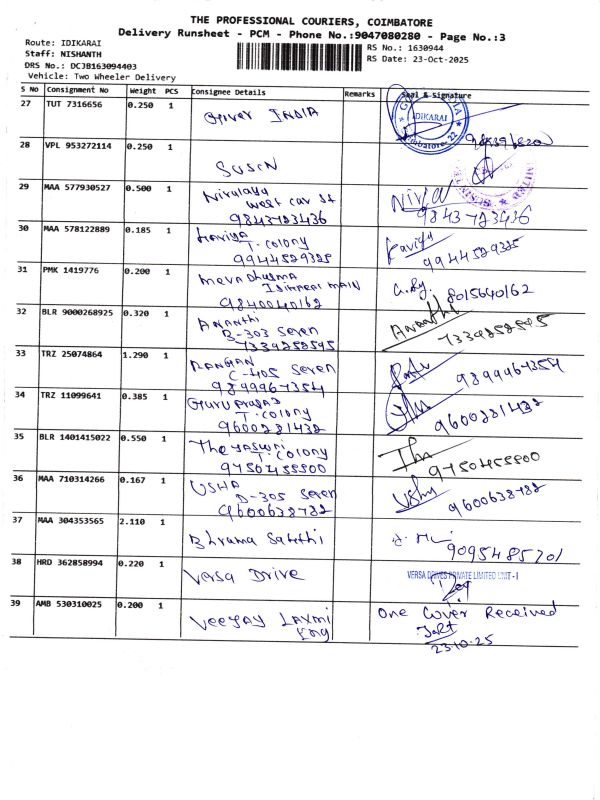 THE PROFESSIONAL COURIERS, COIMBATORE
Delivery Runsheet - PCM - Phone No.:9047080280 - Page No.:3
Route: IDIKARAI
RS No.: 1630944
Staff: NISHANTH
RS Date: 23-Oct-2025
DRS No.: DCJB163094403
Vehicle: Two Wheeler Delivery
S No Consignment No Weight PCS Consignee Details Remarks Seal & Signature
27 TUT 7316656 0.250 1 INDIA
IDIKARAI
28 VPL 953272114 0.250 1
SUSIN
29 MAA 577930527 0.500 1 Nirmalaya
West Car St
9843723436 9843723436
30 MAA 578122889 0.185 1 Kaviya Kaviya
T. Colony
9944529325 9944529325
31 PMK 1419776 0.200 1 Dharma
MAIN
9840040162 8015640162
32 BLR 9000268925 0.320 1 ANANThi Ananthi
B-303 Seven
7339252595 7339252595
33 TRZ 25074864 1.290 1
C-405 Seven
9899967354 9899967354
34 TRZ 11099641 0.385 1 GURU PRASAD
T. Colony
9600231432 9600231432
35 BLR 1401415022 0.550 1
T. Colony
9750455900 9750455900
36 MAA 710314266 0.167 1 USHA Usha
D-305 Seven
9600638782 9600638782
37 MAA 304353565 2.110 1
9095485201
38 HRD 362858994 0.220 1 VERSA DRIVE
VERSA DRIVES PRIVATE LIMITED UNIT - I
39 AMB 530310025 0.200 1 VEEJAY LAXMI One Cover Received
Eng
23.10.25